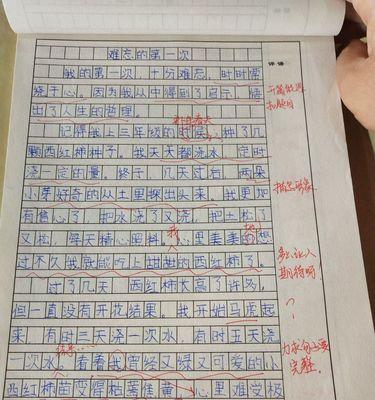 难忘的第一次
评语:
我的第一次,十分难忘,时时常
绕于心。因为我从中得到了启示,悟
出了人生的哲理。
开篇点题
扣题目
昨年春天
记得我上三年级的时候,种了几
颗西红柿种子。我天天都浇水,定时
浇一定的量。终于,几天过后,两朵
小芽好奇的从土里探出头来,我更加
描写形象
有信心了,把水浇了又浇,把土松了
又松,每天精心照料。心里美美的想
我
地
过不久我就能吃上甜甜的西红柿了。
多么让人
期待呀
过了几天,西红柿长高了许多,
但一直没有开花结果。我开始马虎起
?
来,有时三天浇一次水,有时五天浇
一次水。看着我曾经又绿又可爱的小
力求句子要
完整。
西红柿苗变得枯萎焦黄,心里难受极